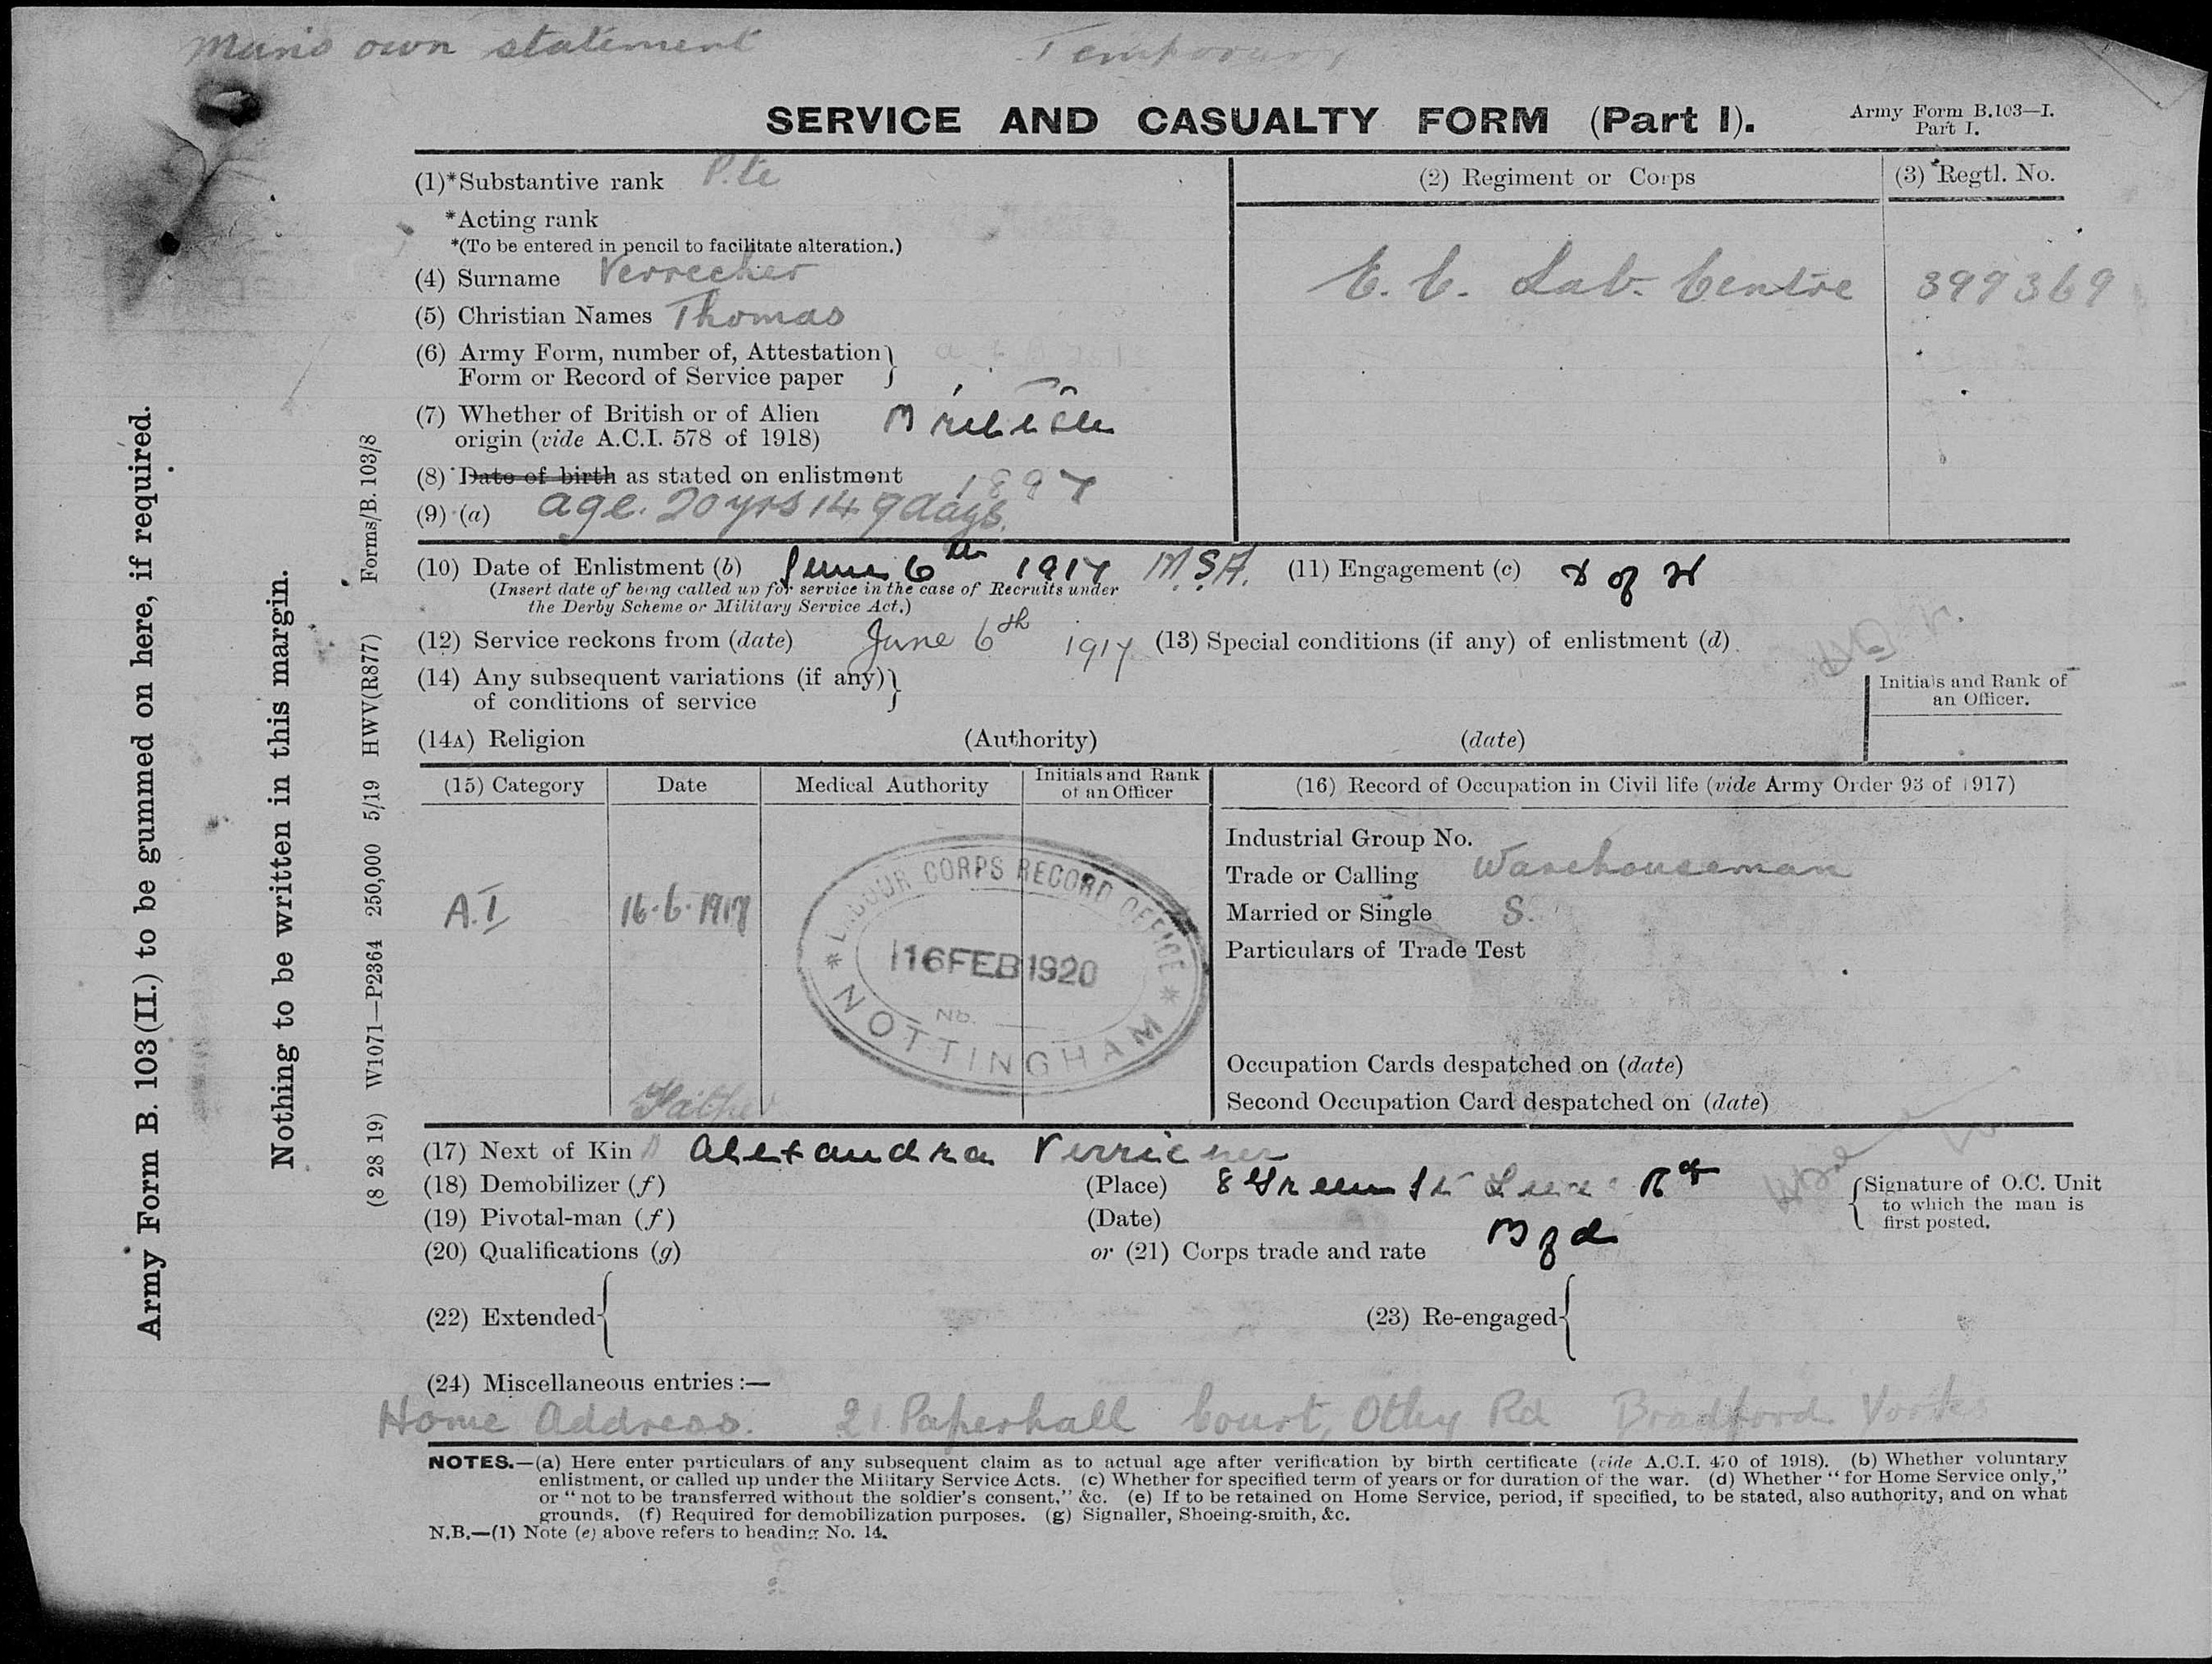 Man's own statement Temporary
SERVICE AND CASUALTY FORM (Part I).
Army Form B.103—I.
Part I.
(1)*Substantive rank Pte
*Acting rank
*(To be entered in pencil to facilitate alteration.)
(2) Regiment or Corps
(3) Regtl. No.
E. C. Lab. Centre 399369
(4) Surname Verrecher
(5) Christian Names Thomas
(6) Army Form, number of, Attestation
Form or Record of Service paper
(7) Whether of British or of Alien
origin (vide A.C.I. 578 of 1918) British
(8) Date of birth as stated on enlistment 1897
(9) (a) age. 20 yrs 149 days.
(10) Date of Enlistment (b) June 6th 1917 M.S.A. (11) Engagement (c) D of W
(Insert date of being called up for service in the case of Recruits under
the Derby Scheme or Military Service Act.)
(12) Service reckons from (date) June 6th 1917 (13) Special conditions (if any) of enlistment (d)
(14) Any subsequent variations (if any)
of conditions of service
Initials and Rank of
an Officer.
(14A) Religion (Authority) (date)
(15) Category Date Medical Authority Initials and Rank
of an Officer
(16) Record of Occupation in Civil life (vide Army Order 93 of 1917)
Industrial Group No.
Trade or Calling Warehouseman
Married or Single S.
Particulars of Trade Test
A.I 16.6.1917
LABOUR CORPS RECORD OFFICE
16 FEB 1920
No.
NOTTINGHAM
Occupation Cards despatched on (date)
Second Occupation Card despatched on (date)
Father
(17) Next of Kin Alexandra Verricher
(18) Demobilizer (f) (Place) 8 Green St Rd
(19) Pivotal-man (f) (Date) Bfd
(20) Qualifications (g) or (21) Corps trade and rate
Signature of O.C. Unit
to which the man is
first posted.
(22) Extended (23) Re-engaged
(24) Miscellaneous entries :—
Home Address. 21 Paperhall Court, Otley Rd Bradford. Yorks
NOTES.—(a) Here enter particulars of any subsequent claim as to actual age after verification by birth certificate (vide A.C.I. 470 of 1918). (b) Whether voluntary
enlistment, or called up under the Military Service Acts. (c) Whether for specified term of years or for duration of the war. (d) Whether "for Home Service only,"
or "not to be transferred without the soldier's consent," &c. (e) If to be retained on Home Service, period, if specified, to be stated, also authority, and on what
grounds. (f) Required for demobilization purposes. (g) Signaller, Shoeing-smith, &c.
N.B.—(1) Note (e) above refers to heading No. 14.
Army Form B. 103 (II.) to be gummed on here, if required.
Nothing to be written in this margin.
(8 28 19) W1071—P2364 250,000 5/19 HWV(R877) Forms/B. 103/8